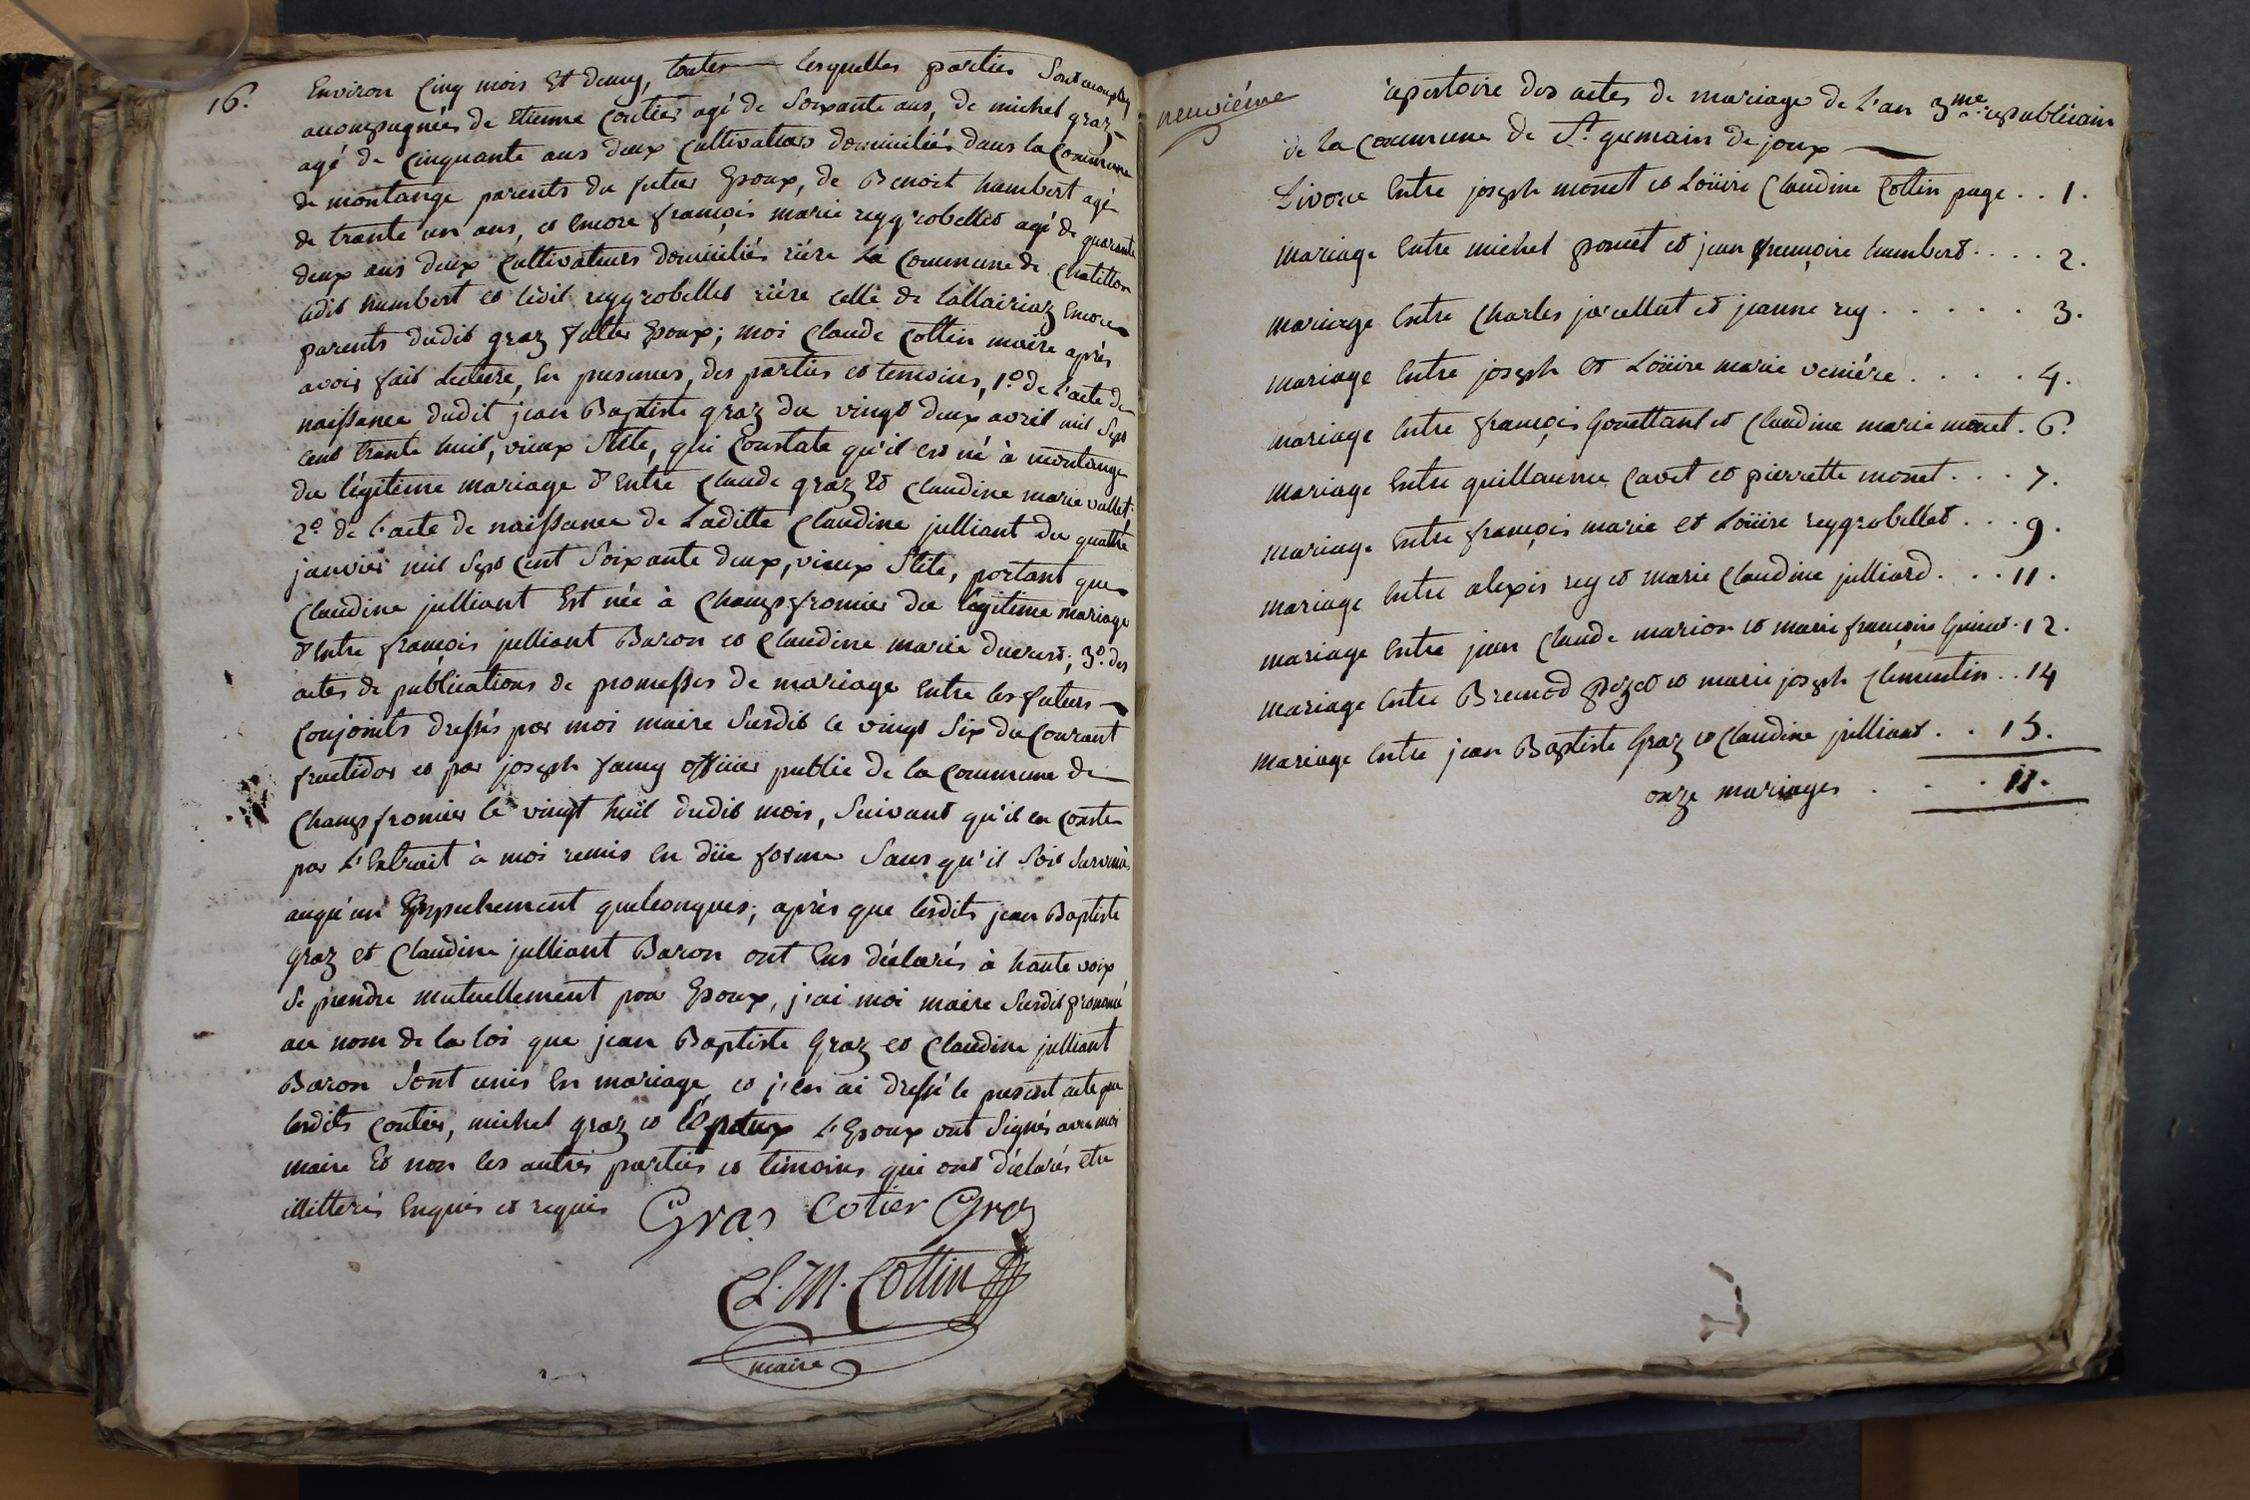 16.
Environ Cinq mois et demy, toutes lesquelles parties Sont
accompagnées de Etienne Coutier agé de Soixante ans, de michel graz
agé de Cinquante ans deux Cultivateurs domiciliés dans la Commune
de montange parents du futur Epoux, de Benoit humbert agé
de trante un ans, et encore françois marie reygrobellet agé de quarante
deux ans deux Cultivateurs domiciliés riére La Commune de Chatillon
ledit humbert et ledit reygrobellet riére celle de Lallairiaz Encore
parents dudit graz futur Epoux; moi Claude Cottin maire après
avoir fait Lecture, En presences, des parties et temoins, 1.º de L'acte de
naissance dudit jean Baptiste graz du vingt deux avril mil Sept
cent trante huit, vieux Stile, qui Constate qu'il est né à montange
du légitime mariage d'Entre Claude graz Et Claudine marie vallet;
2.º de L'acte de naissance de Laditte Claudine julliant du quattre
janvier mil Sept Cent Soixante deux, vieux Stile, portant que
Claudine julliant Est née à Champfromier du légitime mariage
d'Entre françois julliant Baron et Claudine marie ducrest; 3.º des
actes de publications de promesses de mariage Entre les futurs
Conjoints dressés par moi maire Susdit le vingt Six du Courant
fructidor et par joseph famy officier public de la Commune de
Champfromier le vingt huit dudit mois, Suivant qu'il en Conste
par L'Extrait à moi remis En düe forme Sans qu'il Soit Survenu
auqu'un Empechement quelconques; après que lesdits jean Baptiste
graz et Claudine julliant Baron ont Eus déclarés à haute voix
Se prendre mutuellement pour Epoux, j'ai moi maire Susdit prononcé
au nom de la loi que jean Baptiste Graz et Claudine julliant
Baron Sont unis En mariage, et j'en ai dressé le present acte que
lesdits Coutier, michel graz et L'Epoux ont Signés avec moi
maire Et non les autres parties et témoins qui ont déclarés etre
illitterés Enquis et requis Gras Cotier Graz
Cl. M. Cottin
maire
neuvième
répertoire des actes de mariage de L'an 3.me républicain
de la Commune de St. germain de joux
Divorce Entre joseph monet et Loüise Claudine Cottin page . . 1.
Mariage Entre michel poncet et jean françoise humbert . . . . 2.
Mariage Entre Charles jacellat et jeanne rey . . . . . 3.
Mariage Entre joseph et Loüise marie veniére . . . . 4.
Mariage Entre françois Gouettant et Claudine marie monet . 6.
Mariage Entre guillaume Cavet et pierrette monet . . . 7.
Mariage Entre françois marie et Loüise reygrobellet . . . 9.
Mariage Entre alexis rey et marie Claudine julliard . . . 11.
Mariage Entre jean Claude marion et marie françoise Guinet . 12.
Mariage Entre Bremod pezet et marie joseph Clementin . . 14
Mariage Entre jean Baptiste Graz et Claudine julliant . . 15.
onze mariages . . . 11.